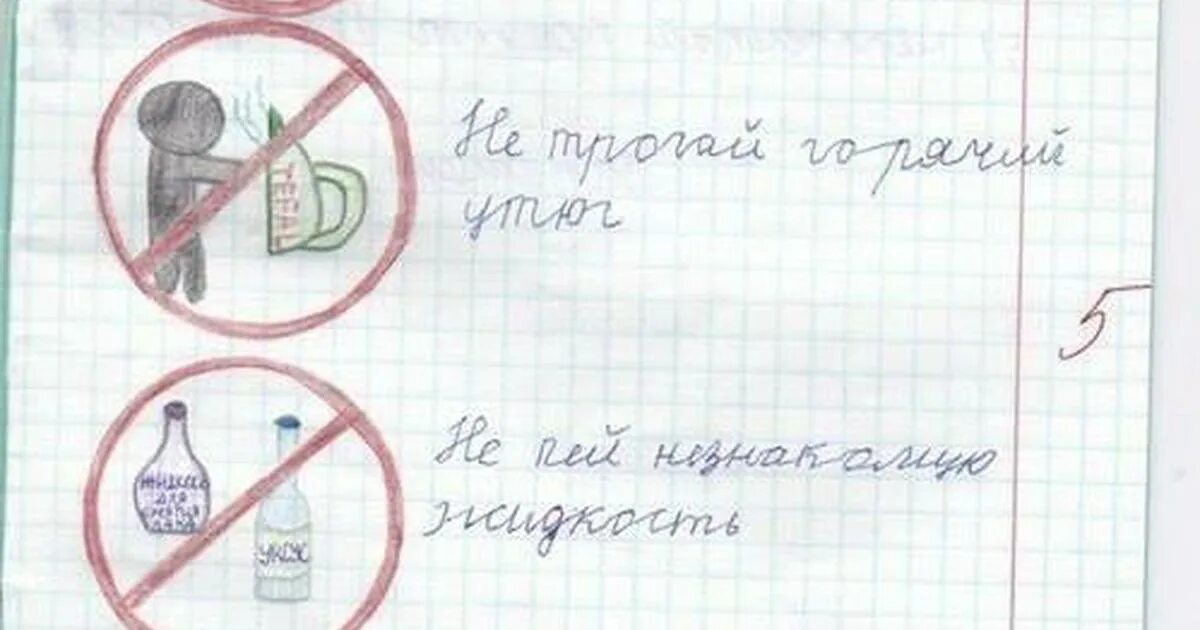 Не трогай горячий
утюг
TEFAL
5
Не пей незнакомую
жидкость
для
лака
уксус